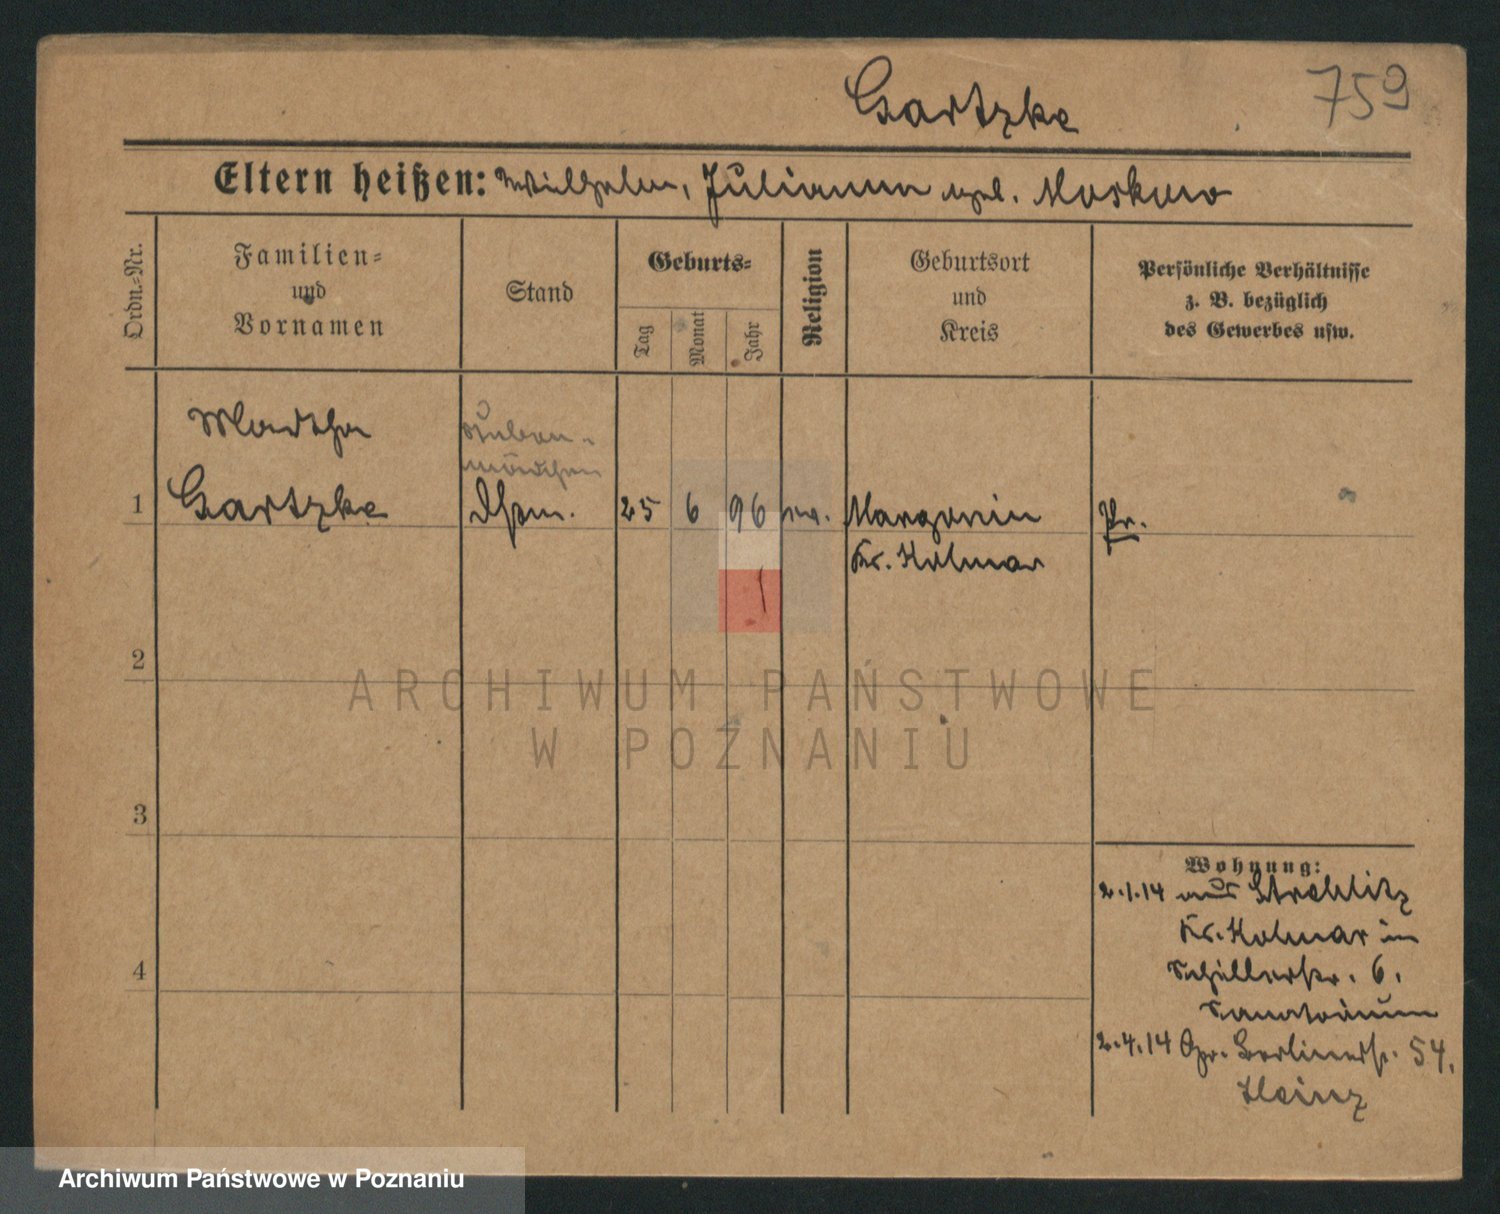 Gartzke
759
Eltern heißen: Wilhelm, Julianna geb. Moskwo
Ordn.-Nr.
Familien-
und
Vornamen
Stand
Geburts-
Tag
Monat
Jahr
Religion
Geburtsort
und
Kreis
Persönliche Verhältnisse
z. B. bezüglich
des Gewerbes usw.
Martha
Stuben-
mädchen
1 Gartzke Dstm. 25 6 96 ev. Margonin Pr.
Kr. Kolmar
2
ARCHIWUM PAŃSTWOWE
W POZNANIU
3
Wohnung:
2.1.14 aus Strehlitz
Kr. Kolmar in
Schillerstr. 6.
Sanatorium
4
2.4.14 Gr. Berlinerstr. 54.
Heinz
Archiwum Państwowe w Poznaniu